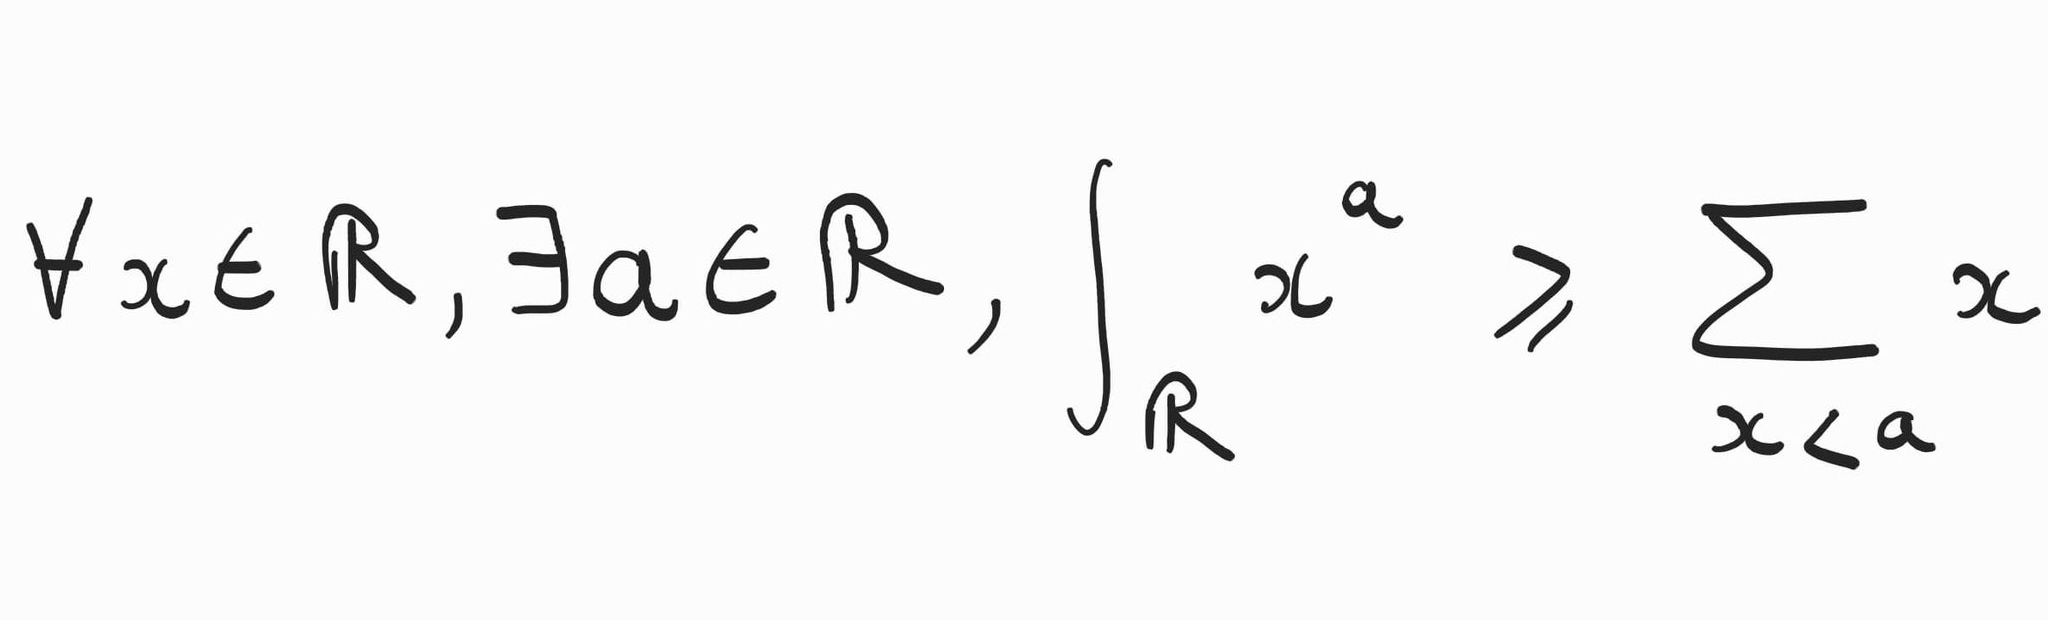 ∀x∈ℝ, ∃a∈ℝ, ∫_ℝ x^a ⩾ ∑_{x<a} x